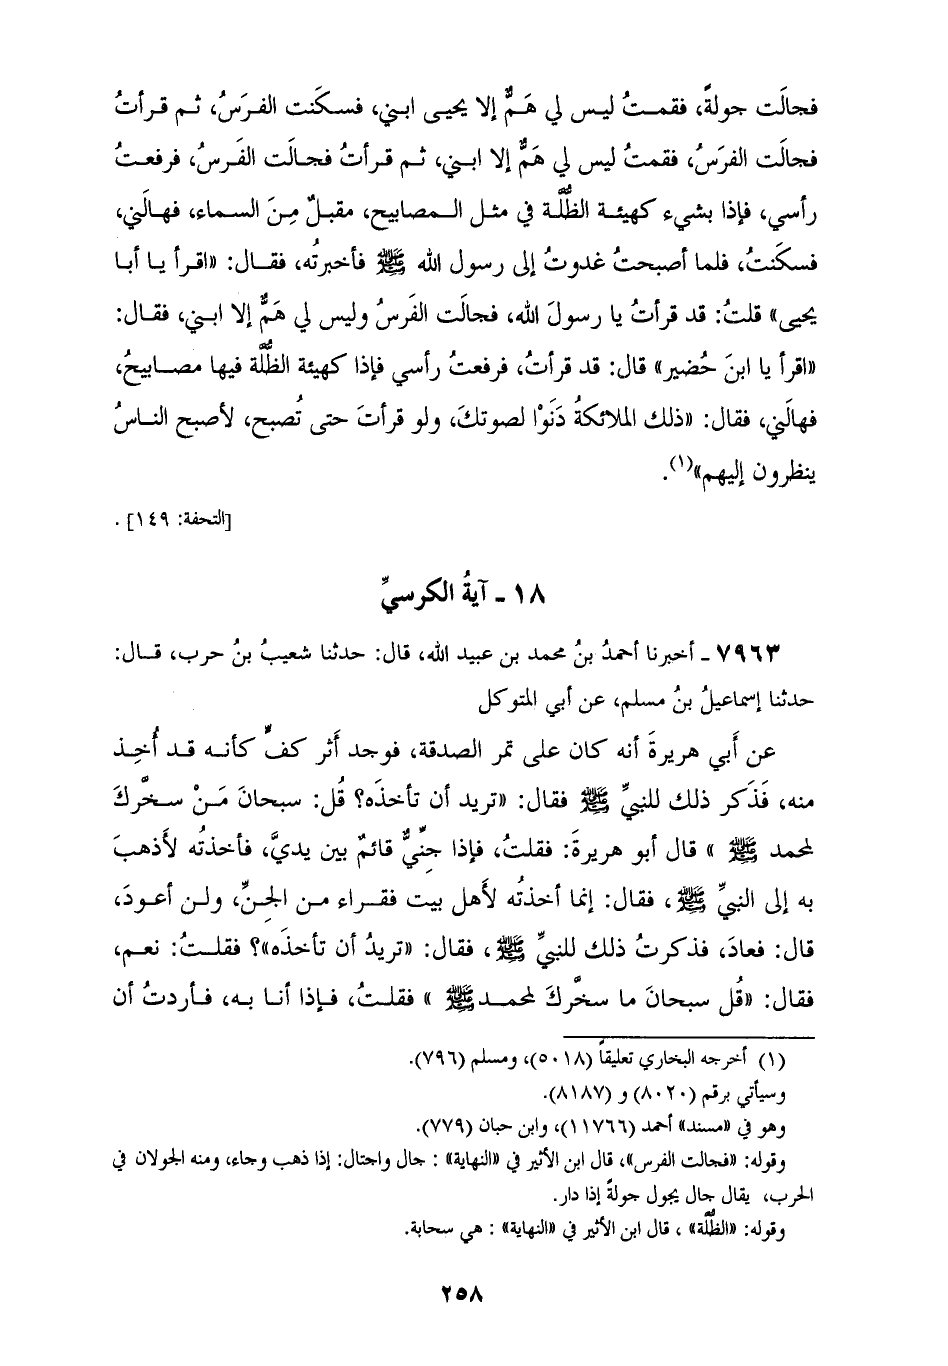 فجالَت جولةً، فقمتُ ليس لي هَمٌّ إلا يحيى ابني، فسكَنت الفرَسُ، ثم قرأتُ
فجالَت الفرَسُ، فقمتُ ليس لي هَمٌّ إلا ابني، ثم قرأتُ فجالَت الفَرسُ، فرفعتُ
رأسي، فإذا بشيء كهيئة الظُّلَّة في مثل المصابيح، مقبلٌ مِنَ السماء، فهالَني،
فسكَنتُ، فلما أصبحتُ غدوتُ إلى رسول الله ﷺ فأخبرتُه، فقال: «اقرأ يا أبا
يحيى» قلتُ: قد قرأتُ يا رسولَ الله، فجالَت الفَرسُ وليس لي هَمٌّ إلا ابني، فقال:
«اقرأ يا ابنَ حُضير» قال: قد قرأتُ، فرفعتُ رأسي فإذا كهيئة الظُّلَّة فيها مصابيحُ،
فهالَني، فقال: «ذلك الملائكةُ دَنَوْا لصوتكَ، ولو قرأتَ حتى تُصبح، لأصبح الناسُ
ينظرون إليهم»(١).
[التحفة: ١٤٩] .
١٨ - آيةُ الكرسيِّ
٧٩٦٣ - أخبرنا أحمدُ بنُ محمد بن عبيد الله، قال: حدثنا شعيبُ بنُ حرب، قال:
حدثنا إسماعيلُ بنُ مسلم، عن أبي المتوكل
عن أبي هريرةَ أنه كان على تمر الصدقة، فوجد أَثر كفٍّ كأنه قد أُخِذ
منه، فَذَكر ذلك للنبيِّ ﷺ فقال: «تريد أن تأخذَه؟ قُل: سبحانَ مَنْ سخَّركَ
لمحمد ﷺ » قال أبو هريرةَ: فقلتُ، فإذا جِنِّيٌّ قائمٌ بين يديَّ، فأخذتُه لأَذهبَ
به إلى النبيِّ ﷺ، فقال: إنما أخذتُه لأَهل بيت فقراء من الجنِّ، ولن أعودَ،
قال: فعادَ، فذكرتُ ذلك للنبيِّ ﷺ، فقال: «تريدُ أن تأخذَه»؟ فقلتُ: نعم،
فقال: «قُل سبحانَ ما سخَّركَ لمحمدﷺ » فقلتُ، فإذا أنا به، فأردتُ أن
(١) أخرجه البخاري تعليقاً (٥٠١٨)، ومسلم (٧٩٦).
وسيأتي برقم (٨٠٢٠) و (٨١٨٧).
وهو في «مسند» أحمد (١١٧٦٦)، وابن حبان (٧٧٩).
وقوله: «فجالت الفرس»، قال ابن الأثير في «النهاية» : جال واجتال: إذا ذهب وجاء، ومنه الجولان في
الحرب، يقال جال يجول جولةً إذا دار.
وقوله: «الظُّلَّة» ، قال ابن الأثير في «النهاية» : هي سحابة.
٢٥٨